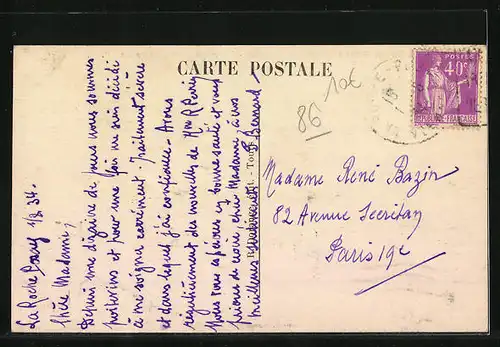 CARTE POSTALE
POSTES
40c
RÉPUBLIQUE FRANÇAISE
86
10€
La Roche Posay 1/8 34.
Chère Madame,
Depuis une dizaine de jours nous sommes
poitevins et pour une fois me suis décidé
à me soigner carrément. Traitement sévère
et dans lequel j'ai confiance. Avons
régulièrement des nouvelles de Paris
Nous vous espérons en bonne santé et vous
prions de croire, chère Madame, à nos
meilleurs
Madame René Bazin
82 Avenue Secrétan
Paris 19e